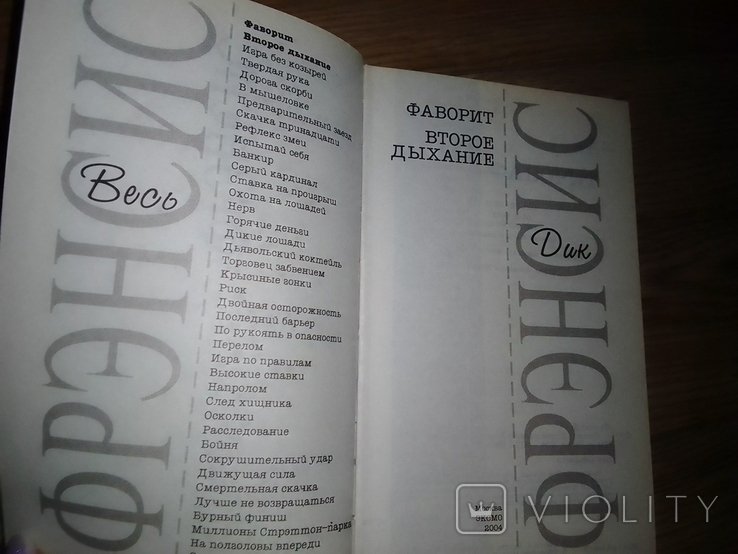 ФРЭНСИС
Весь
Фаворит
Второе дыхание
Игра без козырей
Твердая рука
Дорога скорби
В мышеловке
Предварительный заезд
Скачка тринадцати
Рефлекс змеи
Испытай себя
Банкир
Серый кардинал
Ставка на проигрыш
Охота на лошадей
Нерв
Горячие деньги
Дикие лошади
Дьявольский коктейль
Торговец забвением
Крысиные гонки
Риск
Двойная осторожность
Последний барьер
По рукоять в опасности
Перелом
Игра по правилам
Высокие ставки
Напролом
След хищника
Осколки
Расследование
Бойня
Сокрушительный удар
Движущая сила
Смертельная скачка
Лучше не возвращаться
Бурный финиш
Миллионы Стрэттон-парка
На полголовы впереди
ФАВОРИТ
ВТОРОЕ
ДЫХАНИЕ
Москва
ЭКСМО
2004
ФРЭНСИС
Дик
VIOLITY